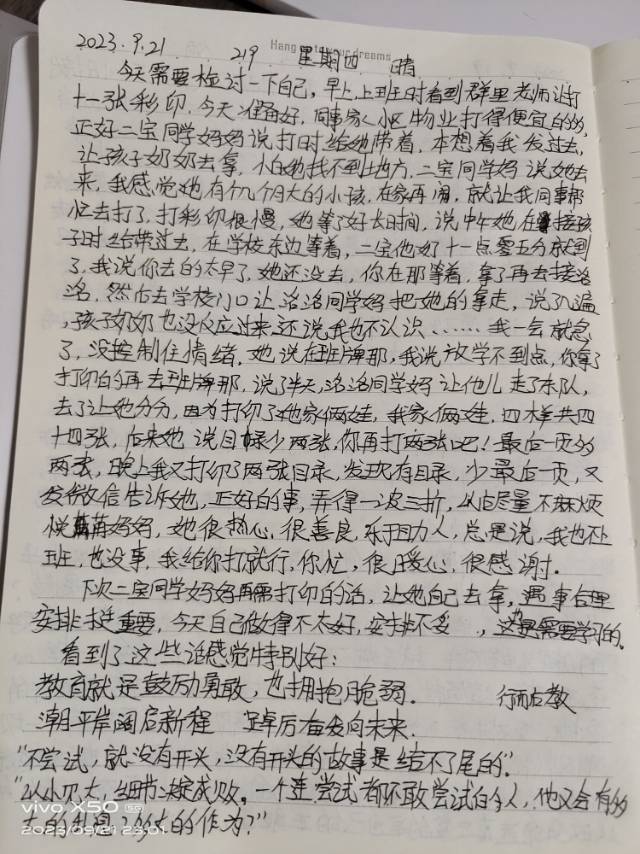 2023.9.21 219 星期四 晴
Hang your dreams
今天需要检讨一下自己,早上上班时看到群里老师让打
十一张彩印,今天准备好,同事家小区物业打得便宜的多,
正好二宝同学妈妈说打时给她带着,本想着我发过去,
让孩子奶奶去拿,小白她找不到地方,二宝同学妈说她去
来,我感觉她有个几个月大的小孩,在家再闹,就让我同事帮
忙去打了,打彩印很慢,她等了好长时间,说中午她在接孩
子时给带过去,在学校东边等着,二宝他奶十一点零五分就到
了,我说你去的太早了,她还没去,你在那等着,拿了再去接洛
洛,然后去学校门口让洛洛同学妈把她的拿走,说了几遍
,孩子奶奶也没反应过来,还说我也不认识……我一会就急
了,没控制住情绪,她说在班牌那,我说放学不到点,你拿了
打印的再去班牌那,说了半天,洛洛同学妈让他儿走了本队,
去了让她分分,因为打印了她家俩娃,我家俩娃,四样共四
十四张,后来她说目录少两张,你再打两张吧!最后一页的
两张,晚上我又打印了两张目录,发现有目录,少最后一页,又
发微信告诉她,正好的事,弄得一波三折,以后尽量不麻烦
悦苒妈妈,她很热心,很善良,乐于助人,总是说,我也不上
班,也没事,我给你打就行,你忙,很暖心,很感谢.
下次二宝同学妈妈再需打印的话,让她自己去拿,遇事合理
安排挺重要,今天自己做得不太好,安排不妥,这是需要学习的.
看到了这些话感觉特别好:
教育就是鼓励勇敢,也拥抱脆弱. 行而后教
潮平岸阔启新程 踔厉奋发向未来.
"不尝试,就没有开头,没有开头的故事是结不了尾的".
"以小见大,细节决定成败,一个连尝试都不敢尝试的人,他又会有多
大的利息?多大的作为?"
vivo X50 5G
2023/09/21 23:01